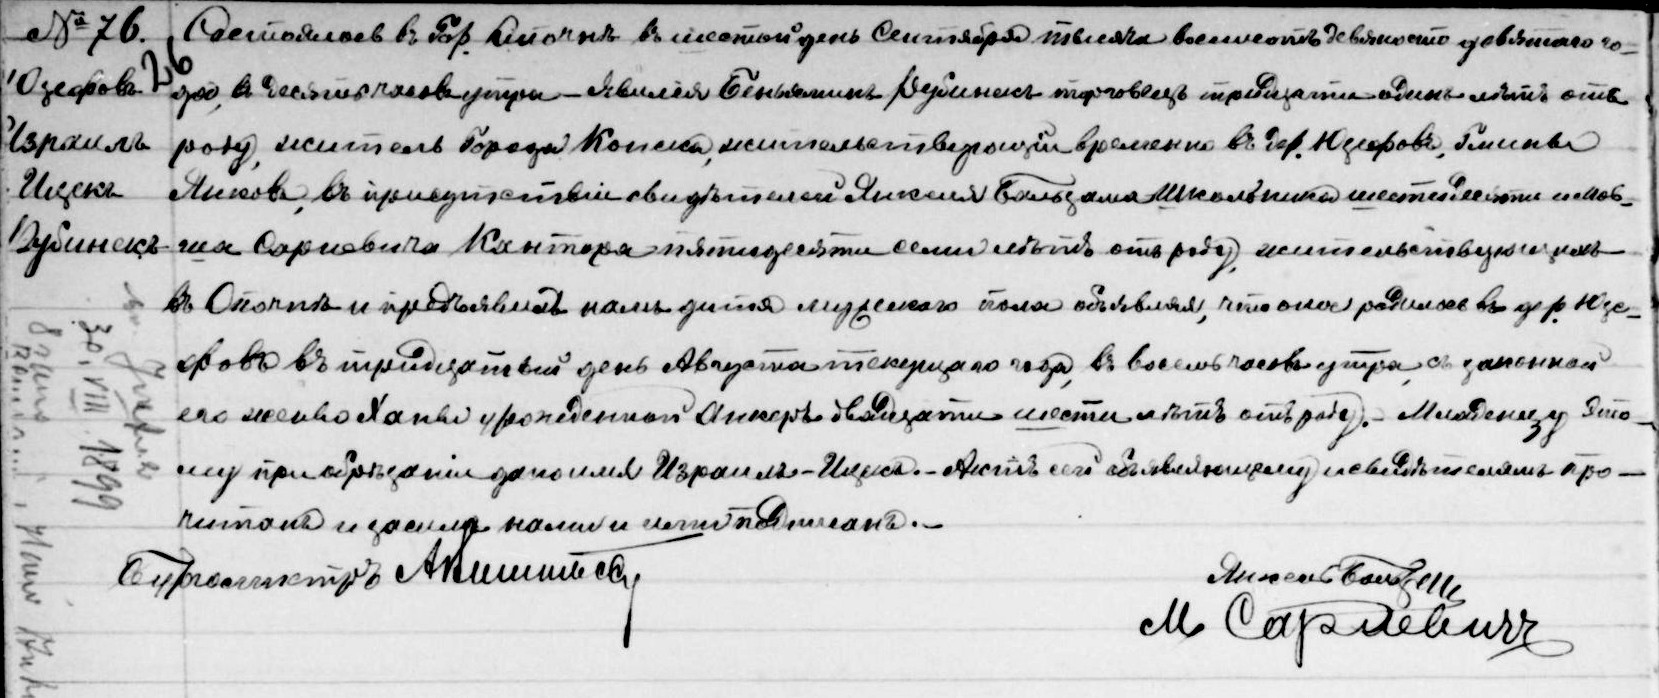 № 76.
26
Юзефовъ
Израиль
Ицекъ
Рубинекъ
Состоялось въ Гор. Опочнѣ въ шестой день Сентября тысяча восемьсотъ девяносто девятаго го-
да, въ десять часовъ утра – явился Беньяминъ Рубинекъ торговецъ тридцати одинъ лѣтъ отъ
роду, житель города Конска, жительствующій временно въ дер. Юзефовъ, Гмины
Янковъ, въ присутствіи свидѣтелей Янкеля Бальзама Школьника шестидесяти и Мов-
ша Сарневича Кантора пятидесяти семи лѣтъ отъ роду, жительствующихъ
въ Опочнѣ и предъявилъ намъ дитя мужескаго пола объявляя, что оное родилось въ дер. Юзе-
фовъ въ тридцатый день Августа текущаго года, въ восемь часовъ утра, съ законной
его женою Ханы урожденной Анкеръ двадцати шести лѣтъ отъ роду. – Младенцу это-
му при обрѣзаніи дано имя Израиль-Ицекъ. – Актъ сей объявляющему и свидѣтелямъ про-
читанъ и засимъ нами и ими подписанъ. –
Бургомистръ
Янкель Бальзам
М Сарневичъ
30. VIII 1899